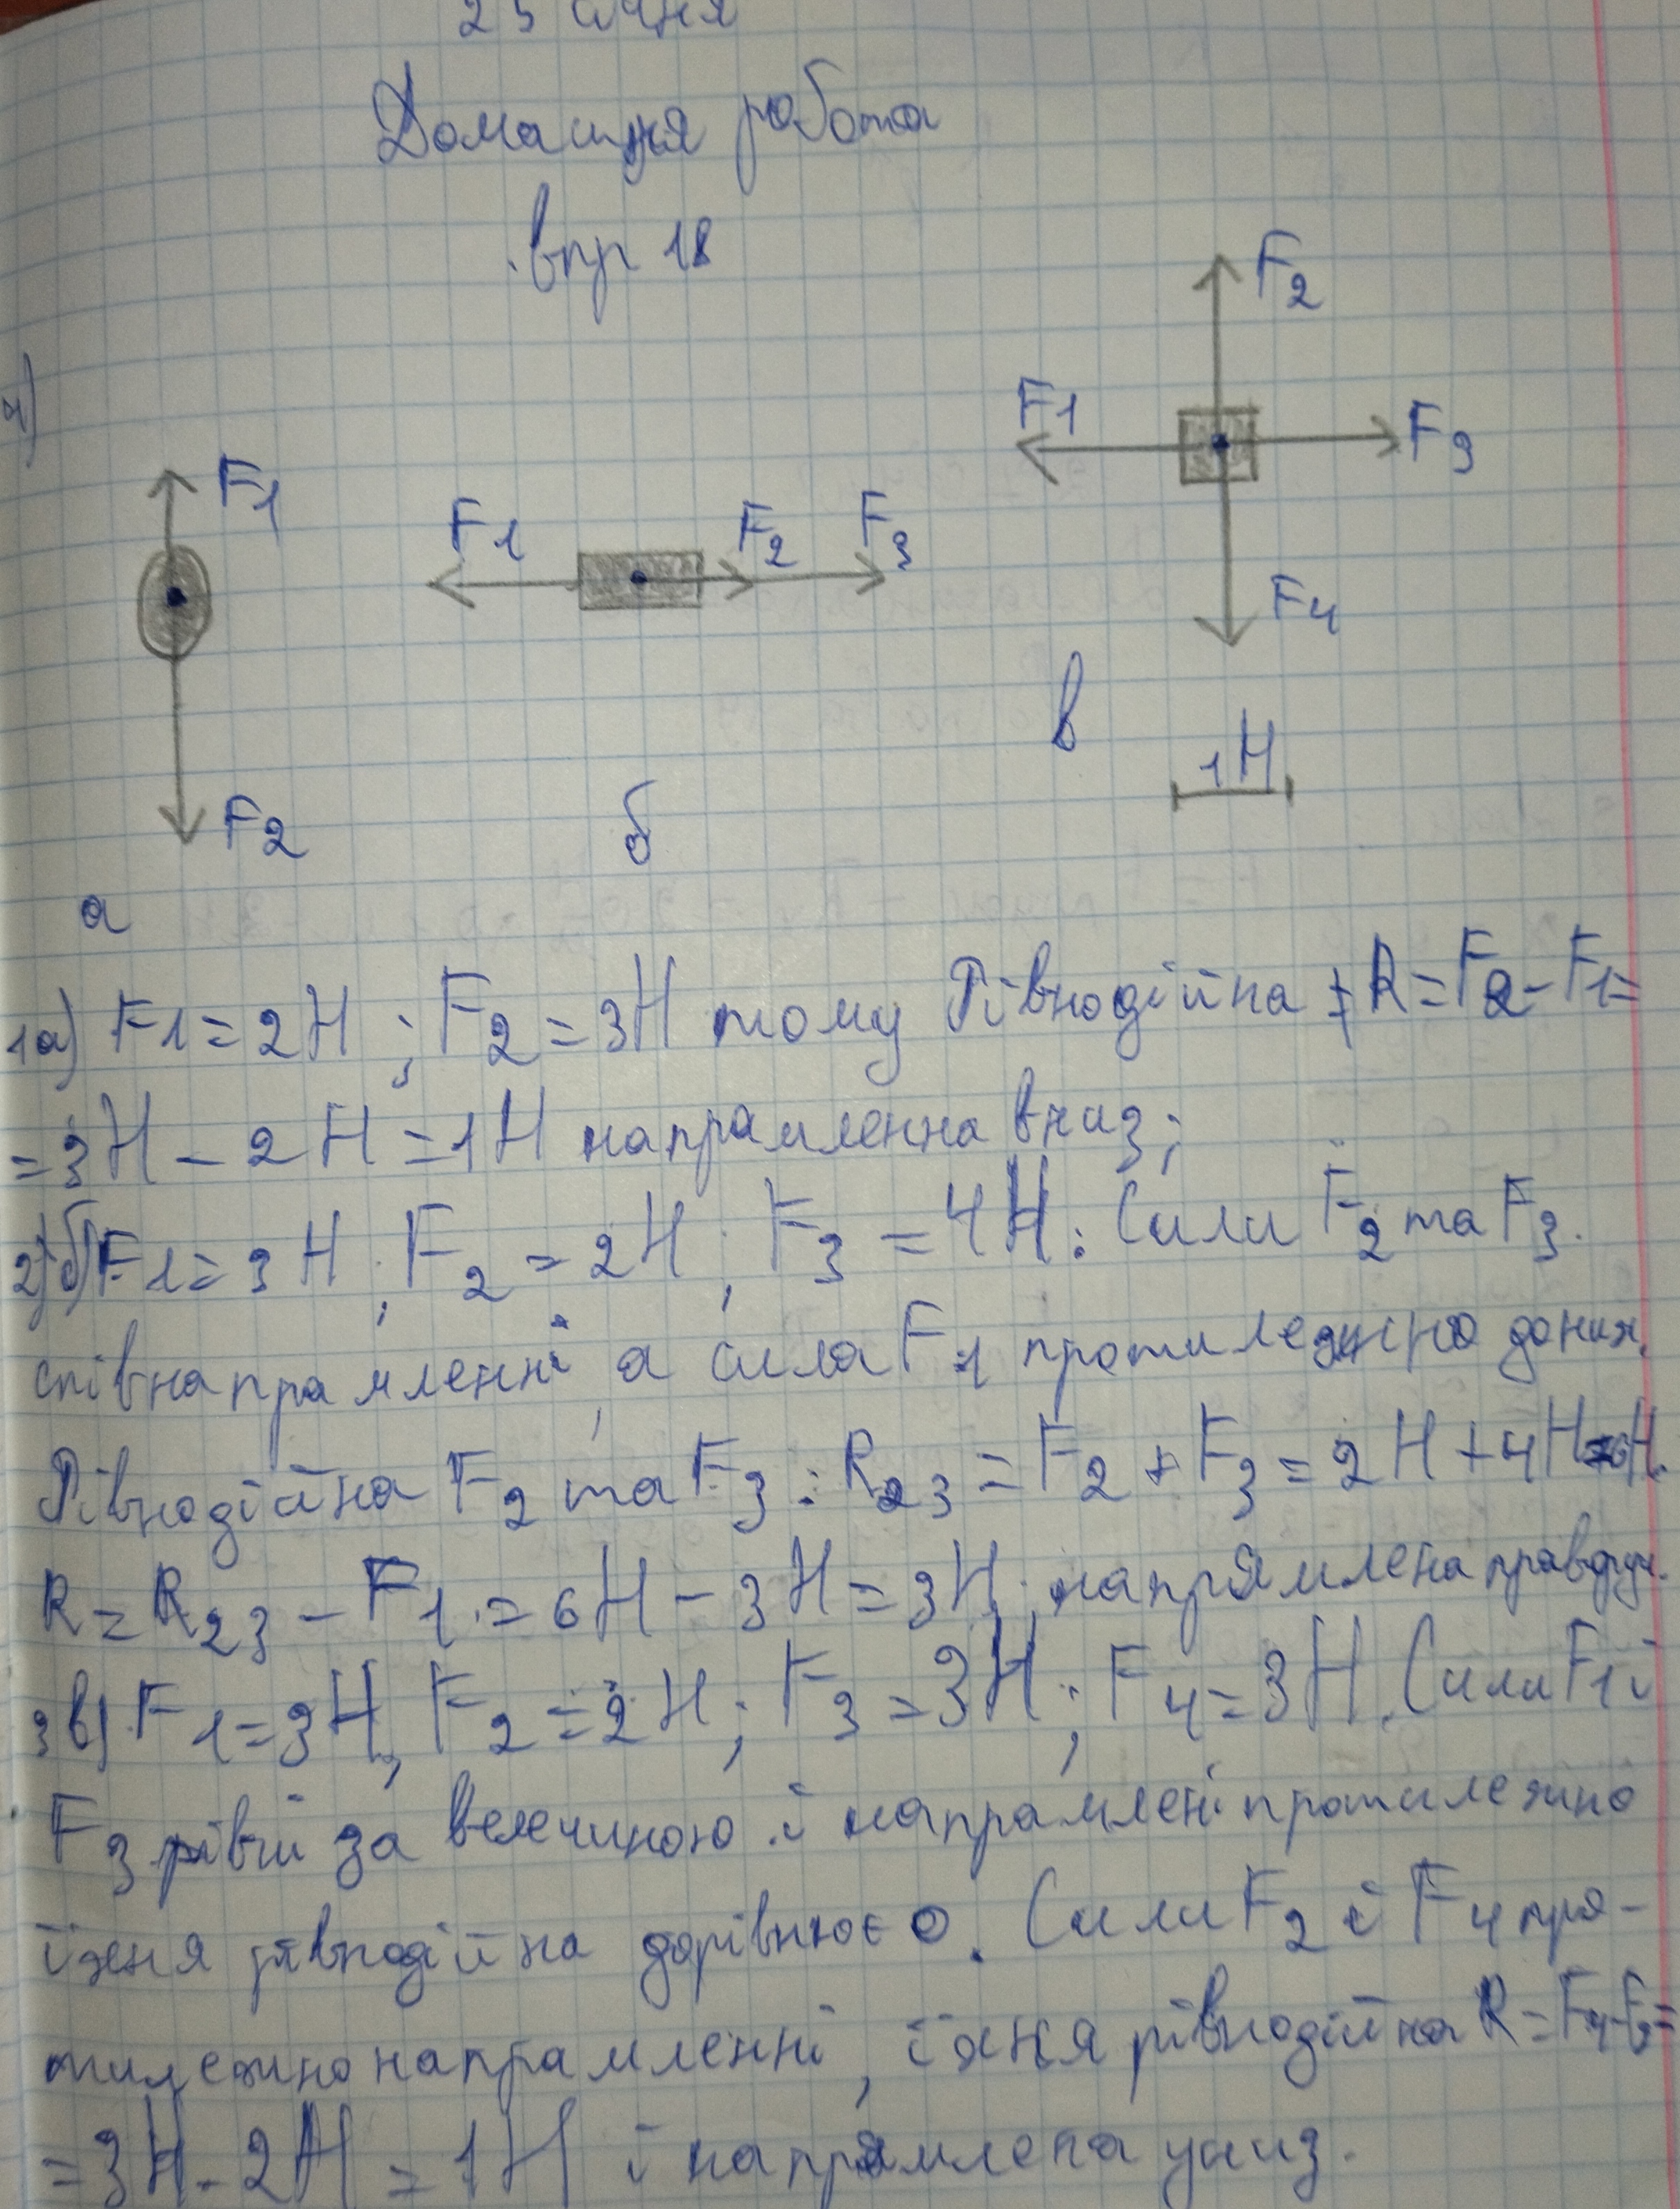 25 січня
Домашня робота
впр 18
F2
F1
F3
F1
F1
F2
F3
F4
в
1Н
F2
б
а
1а) F1=2Н ; F2=3Н тому Рівнодійна R=F2-F1=
=3Н-2Н=1Н напрамленна вниз;
2)б) F1=3Н; F2=2Н; F3=4Н: Сили F2 та F3.
співнапрамленні, а сила F1 протилежно до них.
Рівнодійна F2 та F3: R23=F2+F3=2Н+4Н=6Н.
R=R23-F1=6Н-3Н=3Н, напрямлена праворуч.
3в) F1=3Н, F2=2Н; F3=3Н; F4=3Н. Сили F1 і
F3 рівні за велечиною і напрамлені протилежно
їхня рівнодійна дорівнює 0. Сили F2 і F4 про-
тилежно напрамленні, їхня рівнодійна R=F4-F2=
=3Н-2Н=1Н і напрямлена униз.